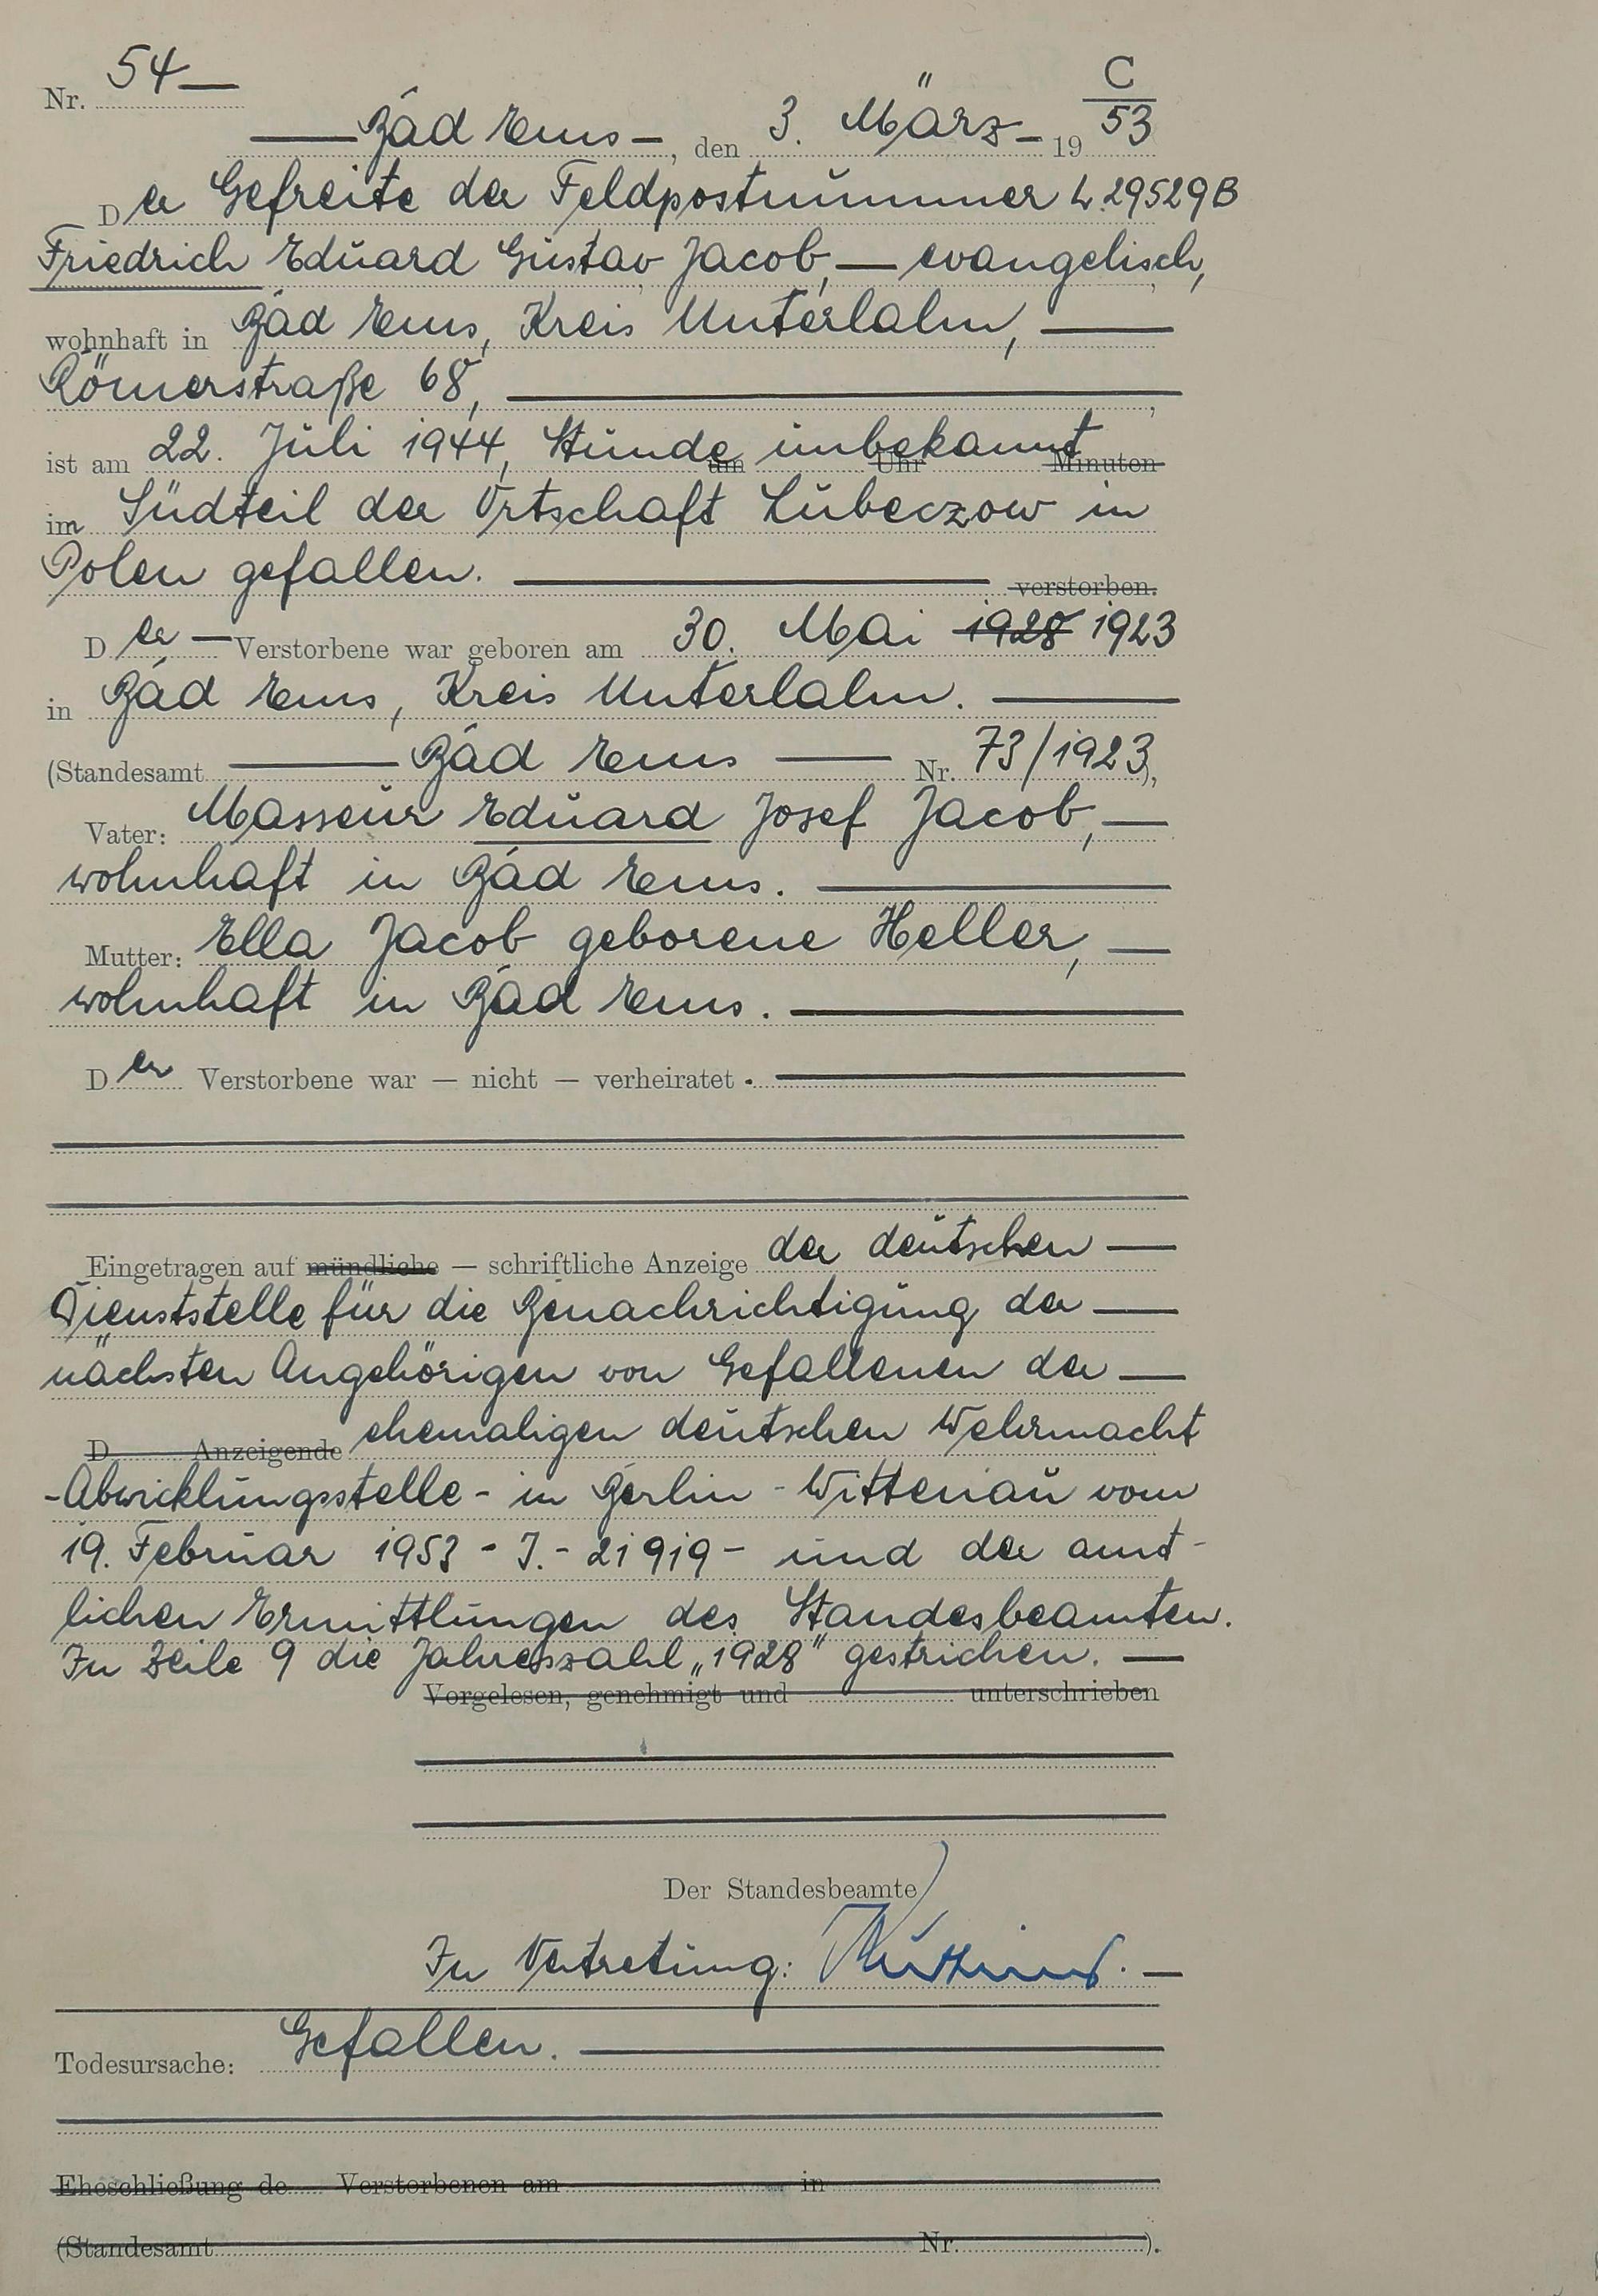 C
Nr. 54
Bad Ems, den 3. März 1953
Der Gefreite der Feldpostnummer L 29529B
Friedrich Eduard Gustav Jacob, evangelisch,
wohnhaft in Bad Ems, Kreis Unterlahn,
Römerstraße 68,
ist am 22. Juli 1944, Stunde unbekannt um Uhr Minuten
im Südteil der Ortschaft Lubeczow in
Polen gefallen. verstorben.
Der Verstorbene war geboren am 30. Mai 1928 1923
in Bad Ems, Kreis Unterlahn.
(Standesamt Bad Ems Nr. 73/1923),
Vater: Masseur Eduard Josef Jacob,
wohnhaft in Bad Ems.
Mutter: Ella Jacob geborene Heller,
wohnhaft in Bad Ems.
Der Verstorbene war — nicht — verheiratet.
Eingetragen auf mündliche — schriftliche Anzeige der deutschen
Dienststelle für die Benachrichtigung der
nächsten Angehörigen von Gefallenen der
D Anzeigende ehemaligen deutschen Wehrmacht
-Abwicklungsstelle- in Berlin-Wittenau vom
19. Februar 1953 - J.- 21919 - und der amt-
lichen Ermittlungen des Standesbeamten.
In Zeile 9 die Jahreszahl „1928" gestrichen.
Vorgelesen, genehmigt und unterschrieben
Der Standesbeamte
In Vertretung:
Todesursache: Gefallen.
Eheschließung de Verstorbenen am in
(Standesamt Nr. ).